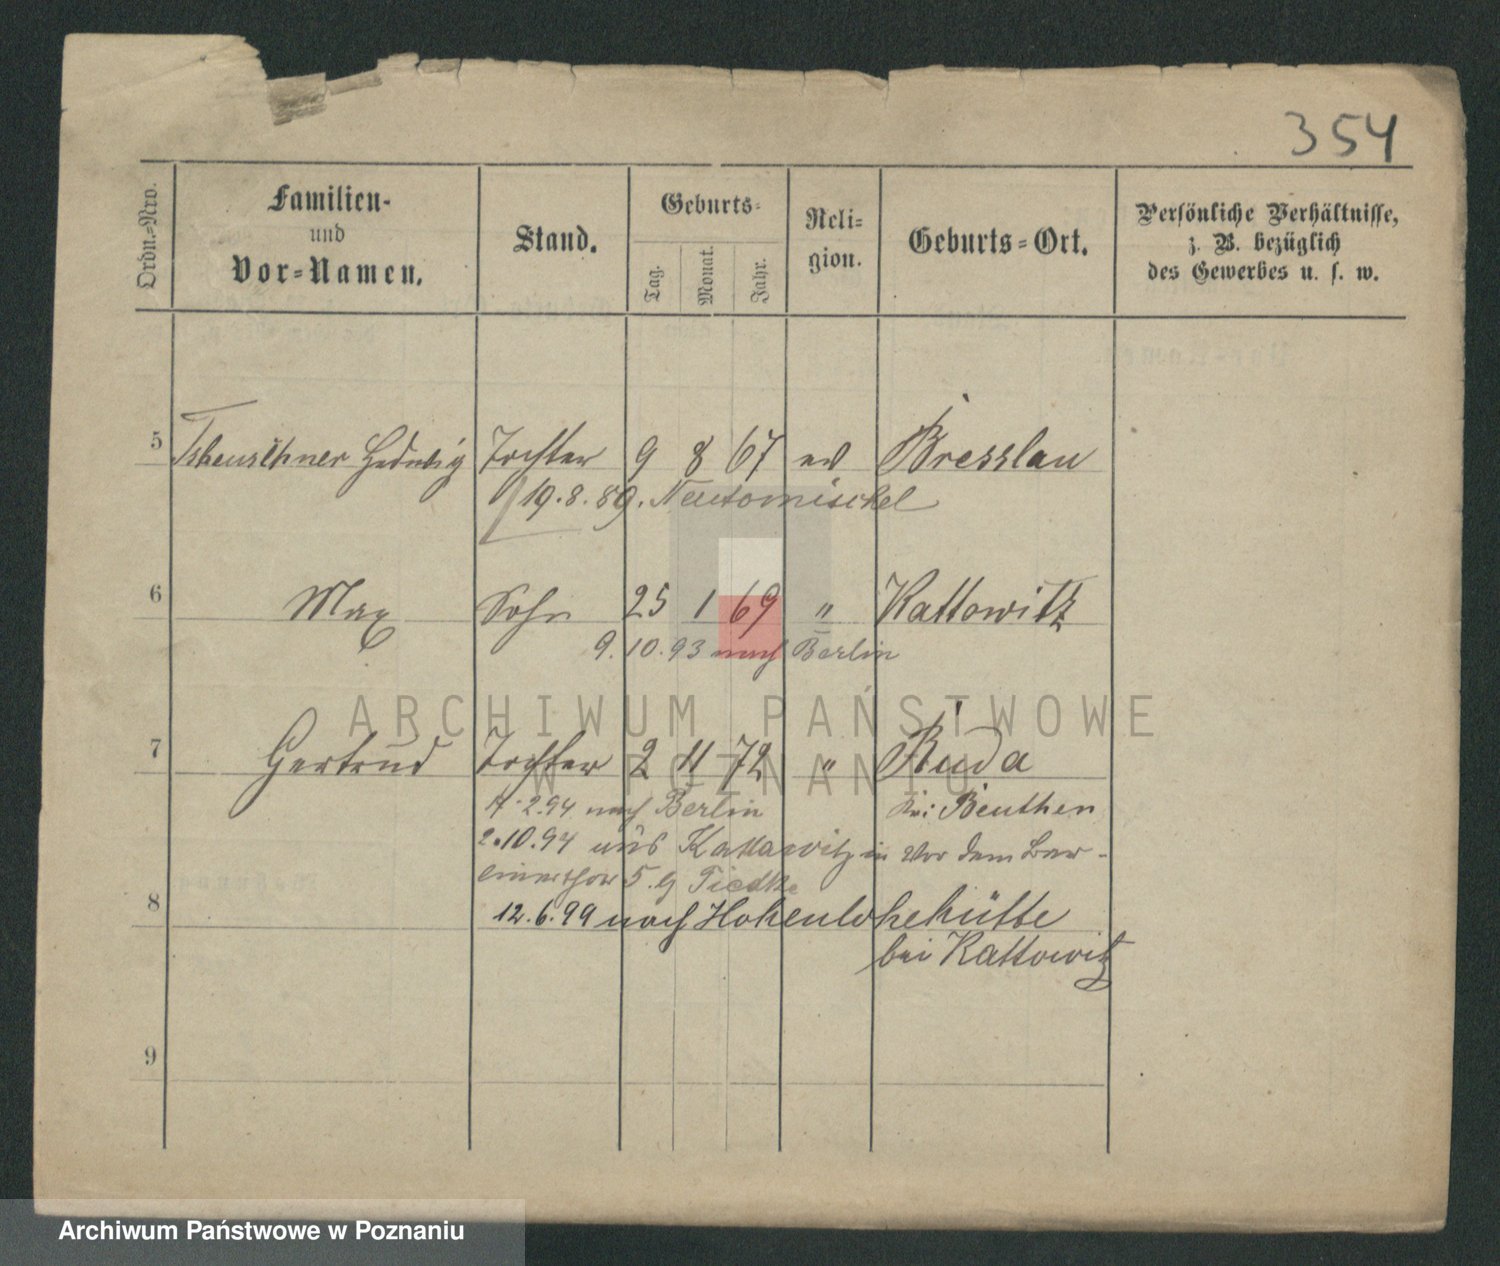 354
Ordn.-Nro.
Familien-
und
Vor-Namen.
Stand.
Geburts-
Tag.
Monat.
Jahr.
Reli-
gion.
Geburts-Ort.
Persönliche Verhältnisse,
z. B. bezüglich
des Gewerbes u. s. w.
5 Hedwig Tochter 9 8 67 ev Bresslau
19.8.89. Neutomischel
6 Max Sohn 25 1 69 " Kattowitz
9.10.93 nach Berlin
ARCHIWUM PAŃSTWOWE
W POZNANIU
7 Gertrud Tochter 2 11 72 " Ruda
2.94 nach Berlin bei Beuthen
2.10.94 aus Kattowitz in Vor dem Ber-
linerthor 5. Tiedtke
8 12.6.99 nach Hohenlohehütte
bei Kattowitz
9
Archiwum Państwowe w Poznaniu